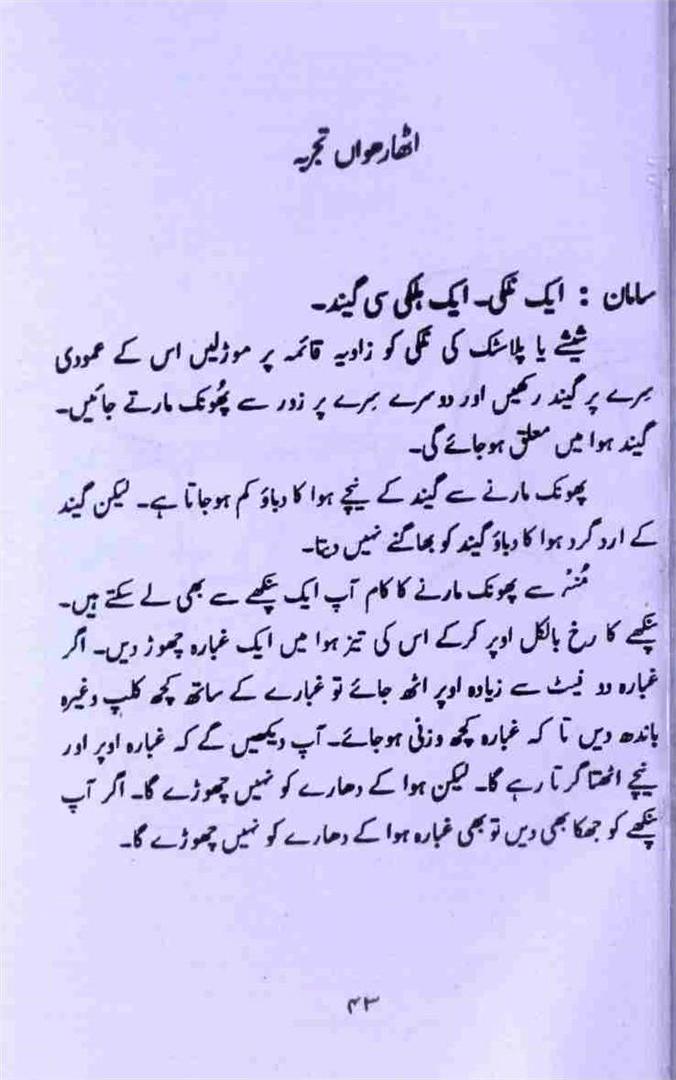 اٹھارھواں تجربہ
سامان : ایک نلکی۔ ایک ہلکی سی گیند۔
شیشے یا پلاسٹک کی نلکی کو زاویہ قائمہ پر موڑلیں اس کے عمودی
سِرے پر گیند رکھیں اور دوسرے سِرے پر زور سے پھُونک مارتے جائیں۔
گیند ہوا میں معلق ہوجائے گی۔
پھونک مارنے سے گیند کے نیچے ہوا کا دباؤ کم ہوجاتا ہے۔ لیکن گیند
کے اردگرد ہوا کا دباؤ گیند کو بھاگنے نہیں دیتا۔
مُنہ سے پھونک مارنے کا کام آپ ایک پنکھے سے بھی لے سکتے ہیں۔
پنکھے کا رخ بالکل اوپر کرکے اس کی تیز ہوا میں ایک غبارہ چھوڑ دیں۔ اگر
غبارہ دو فیٹ سے زیادہ اوپر اٹھ جائے تو غبارے کے ساتھ کچھ کلپ وغیرہ
باندھ دیں تا کہ غبارہ کچھ وزنی ہوجائے۔ آپ دیکھیں گے کہ غبارہ اوپر اور
نیچے اٹھتا گرتا رہے گا۔ لیکن ہوا کے دھارے کو نہیں چھوڑے گا۔ اگر آپ
پنکھے کو جھکا بھی دیں تو بھی غبارہ ہوا کے دھارے کو نہیں چھوڑے گا۔
۴۳